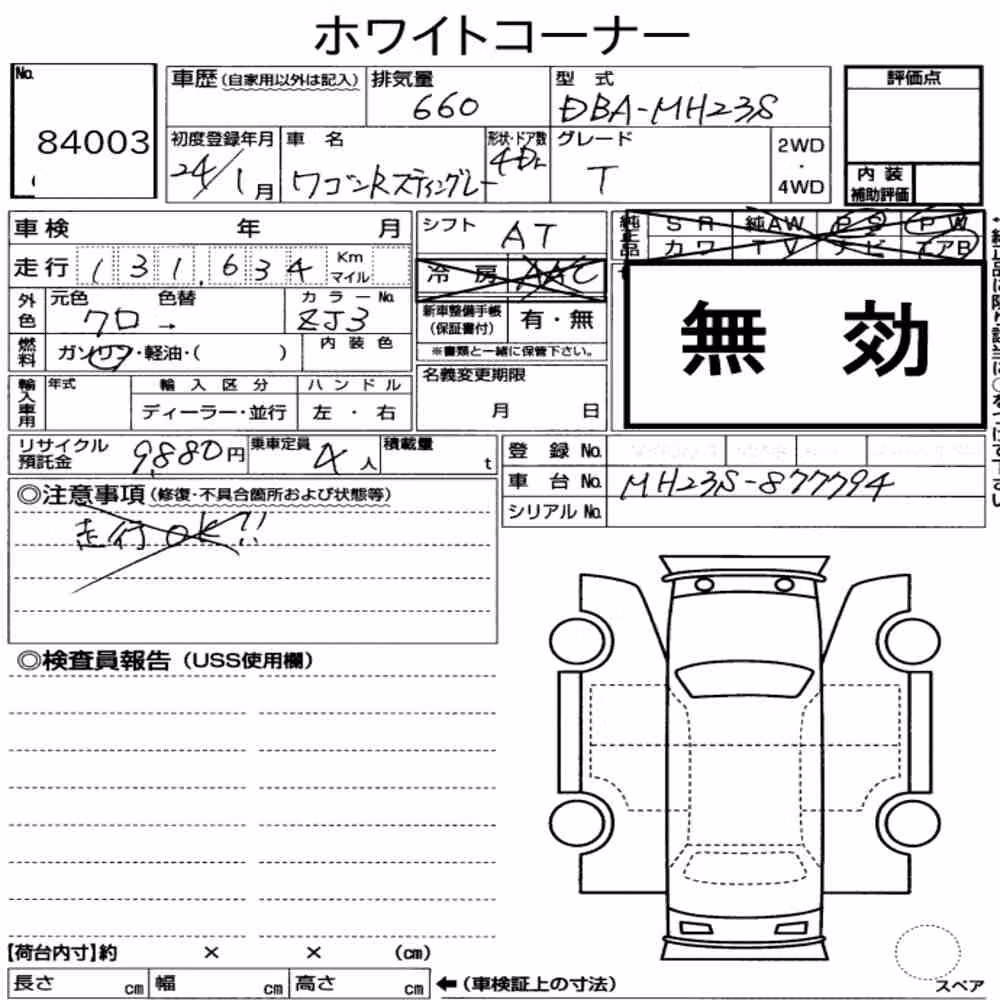 ホワイトコーナー
No. 84003
車歴(自家用以外は記入) 排気量 660 型式 DBA-MH23S 評価点
初度登録年月 24/1月 車名 ワゴンRスティングレー 形状・ドア数 4Dr グレード T 2WD・4WD
内装補助評価
車検 年 月 シフト AT 純正品 SR 純AW PS PW
カワ TV ナビ エアB
走行 131,634 Km マイル 冷房 AAC
外色 元色 クロ→ 色替 カラーNo. ZJ3 新車整備手帳(保証書付) 有・無 無効
燃料 ガソリン・軽油・( ) 内装色 ※書類と一緒に保管下さい。
輸入車用 年式 輸入区分 ハンドル 名義変更期限
ディーラー・並行 左・右 月 日
リサイクル預託金 9,880円 乗車定員 4人 積載量 t 登録No.
車台No. MH23S-877794
シリアルNo.
◎注意事項(修復・不具合箇所および状態等)
走行OK!!
◎検査員報告(USS使用欄)
【荷台内寸】約 × × (cm)
長さ cm 幅 cm 高さ cm ←(車検証上の寸法)
スペア